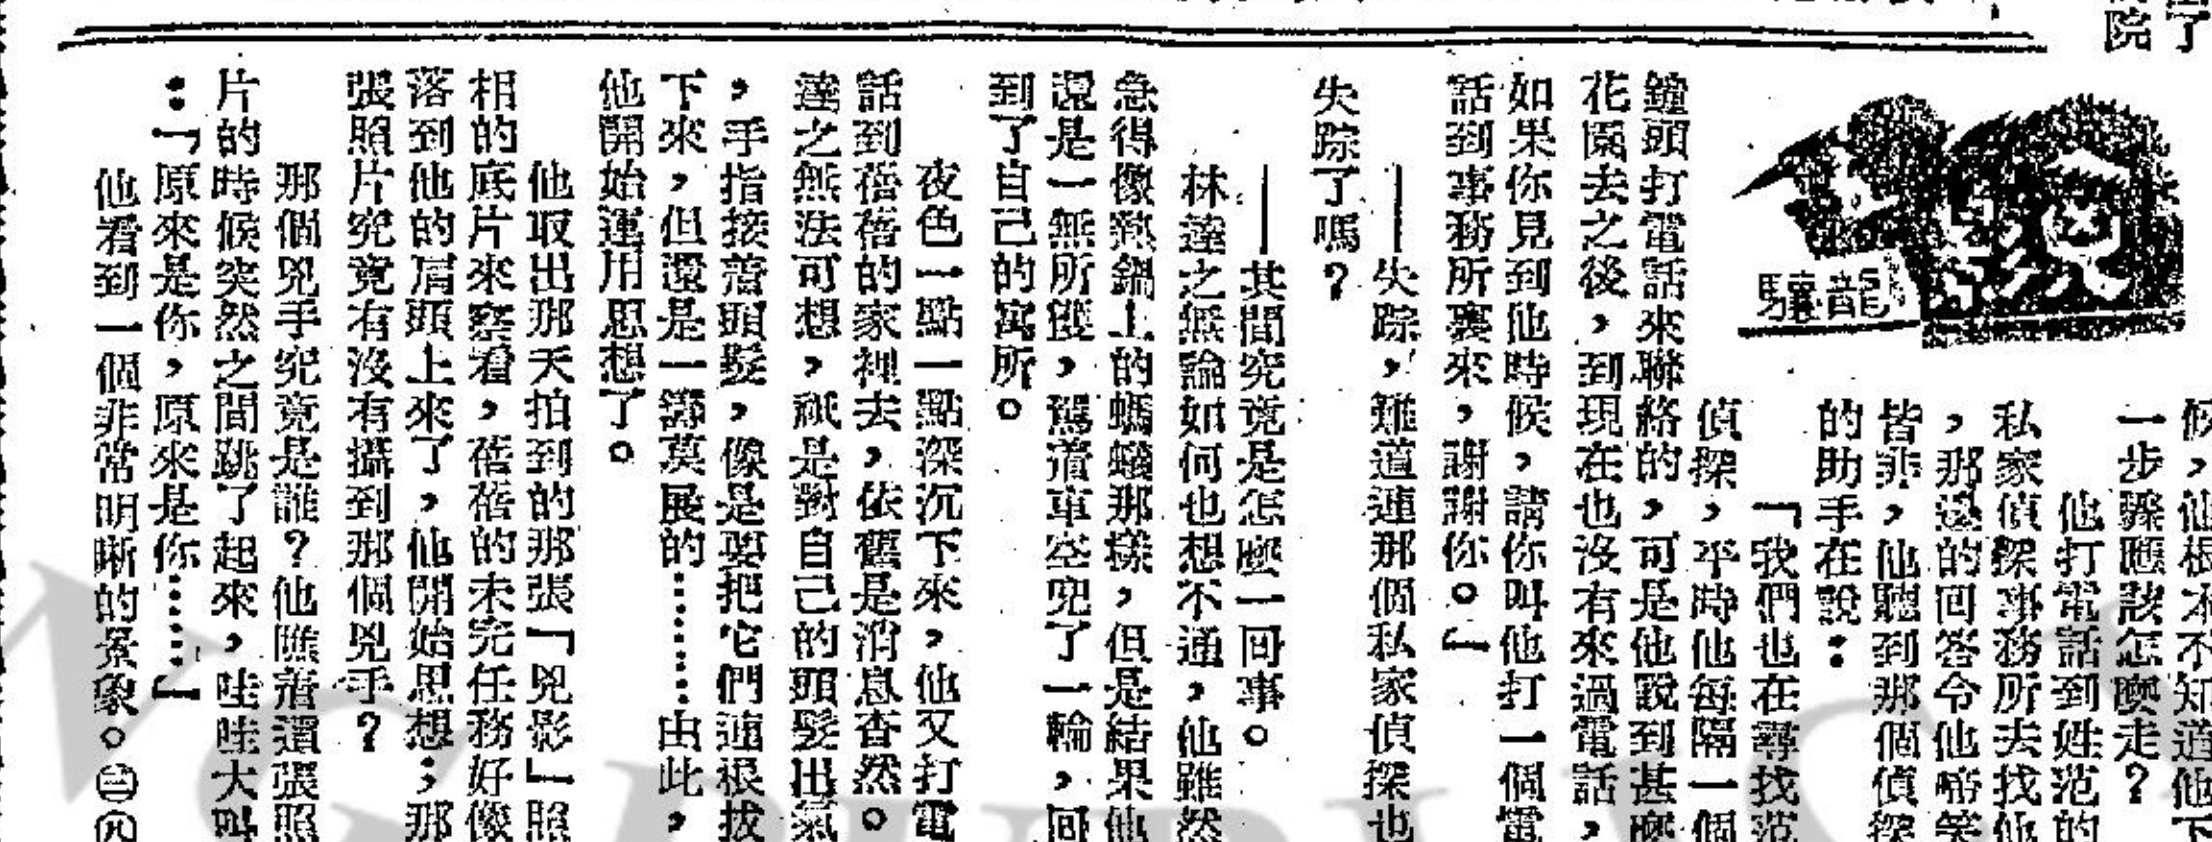 候，他根本不知道他下
一步驟應該怎麼走？
他打電話到姓范的
私家偵探事務所去找他
，那邊的回答令他啼笑
皆非，他聽到那個偵探
的助手在說：
「我們也在尋找范
偵探，平時他每隔一個
鐘頭打電話來聯絡的，可是他說到甚麼
花園去之後，到現在也沒有來過電話，
如果你見到他時候，請你叫他打一個電
話到事務所裏來，謝謝你。」
——失踪，難道連那個私家偵探也
失踪了嗎？
——其間究竟是怎麼一回事。
林達之無論如何也想不通，他雖然
急得像熱鍋上的螞蟻那樣，但是結果他
還是一無所獲，駕着車空兜了一輪，回
到了自己的寓所。
夜色一點一點深沉下來，他又打電
話到蓓蓓的家裡去，依舊是消息杳然。
達之無法可想，祇是對自己的頭髮出氣
，手指接着頭髮，像是要把它們連根拔
下來，但還是一籌莫展的……由此，
他開始運用思想了。
他取出那天拍到的那張「兇影」照
相的底片來察看，蓓蓓的未完任務好像
落到他的肩頭上來了，他開始思想；那
張照片究竟有沒有攝到那個兇手？
那個兇手究竟是誰？他瞧着這張照
片的時候突然之間跳了起來，哇哇大叫
：「原來是你，原來是你……」
他看到一個非常明晰的景象。㊂㊇
龍驤
院
了